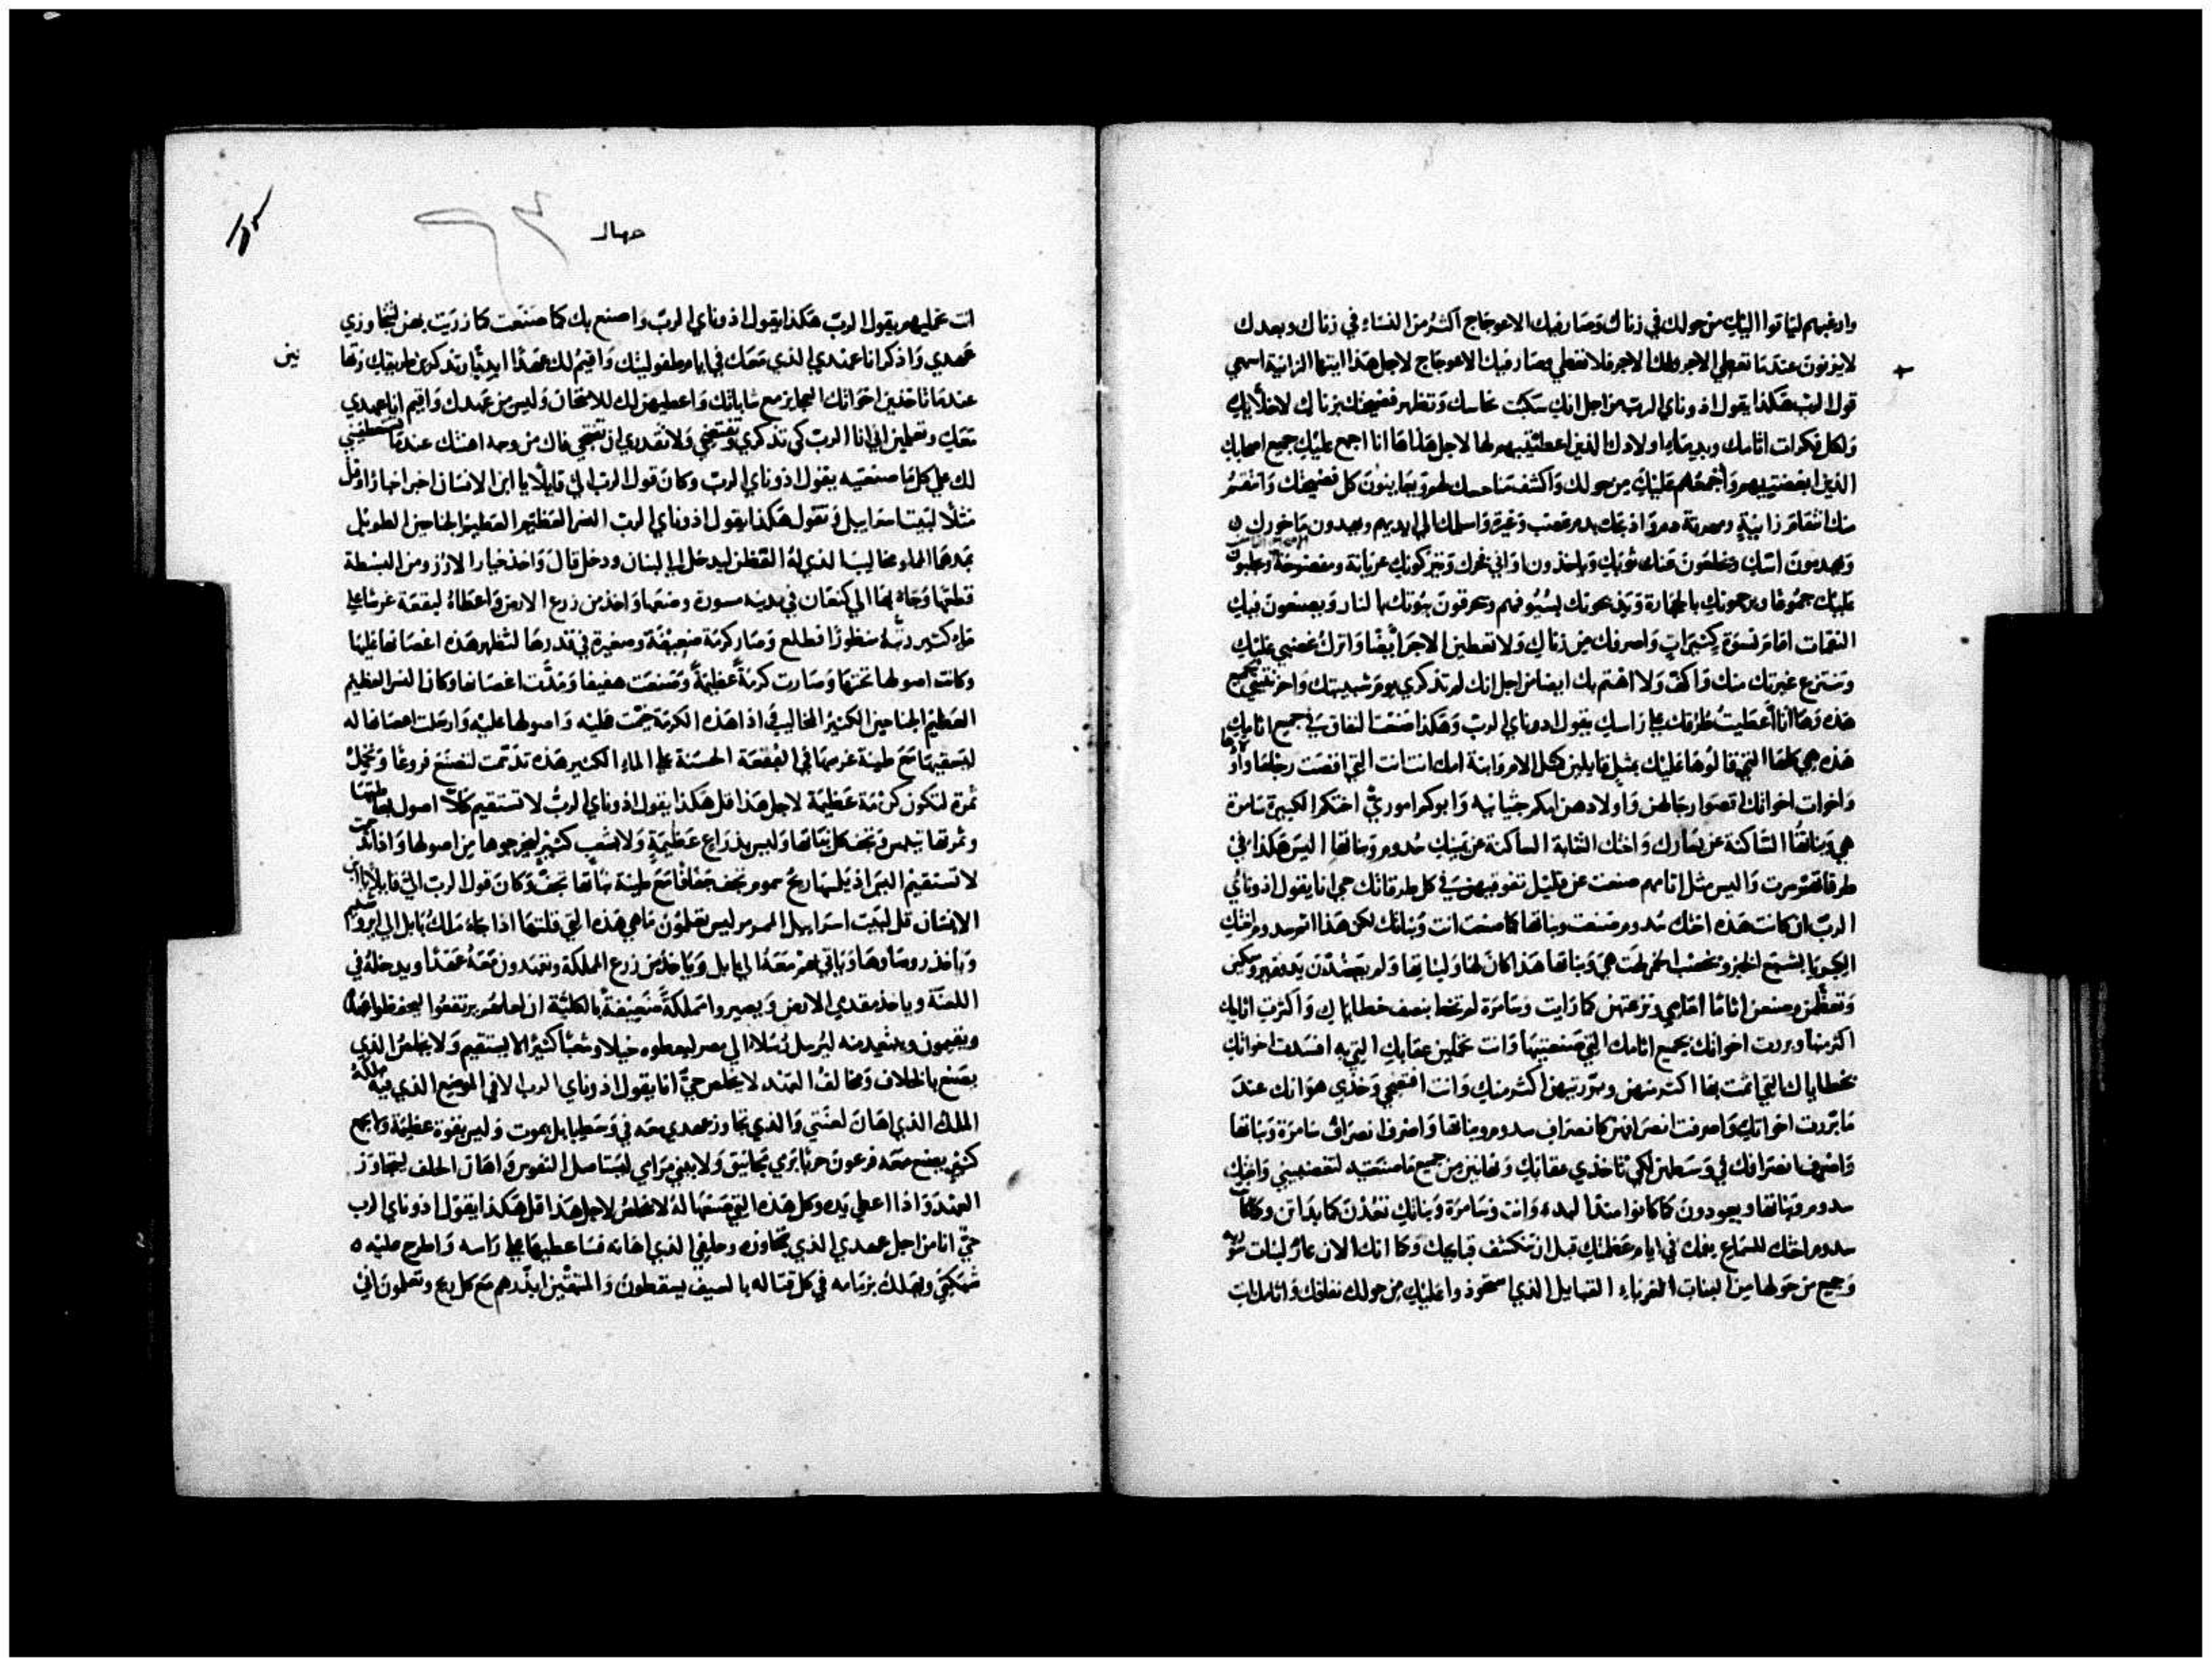 وارغبهم لياتوا اليك من حولك في زناك وصار فيك الاعوجاج اكثر من النساء في زناك وبعدك
لا يزنون عندما تعطي الاجر ولك الاجر فلا تعطي وصار فيك الاعوجاج لاجل هذا ايتها الزانية اسمعي
قول الرب هكذا يقول اذوناي الرب من اجل انك سكبت نحاسك وتظهر فضيحتك بزناك لاخلايك
ولكل فكرات اثامك وبدماء اولادك الذين اعطيتيهم لها لاجل هذا ها انا اجمع عليك جميع اصحابك
الذين ابغضتيهم واجمعهم عليك من حولك واكشف لهم ويعاينون كل فضيحتك وانتقم
منك انتقام زانية دم واذبحك بدم غضب وغيرة واسلمك الي ايديهم ويهدمون ماخورك
ويهدمون اسك ويخلعون عنك ثوبك وياخذون اواني فخرك ويتركونك عريانة ومفضوحة ويجلبون
عليك جموعا ويرجمونك بالحجارة ويذبحونك بسيوفهم ويحرقون بيوتك بالنار ويصنعون فيك
النقمات امام نسوة كثيرات واصرفك من زناك ولا تعطين الاجر ايضا واترك غضبي عليك
وتنتزع غيرتك منك واكف ولا اهتم بك ايضا من اجل انك لم تذكري يوم شبيبتك واحزنتيني بجميع
هذه وها انا اعطيت طرقك علي راسك يقول اذوناي الرب وهكذا صنعت النفاق في جميع اثامك
هذه هي كلها التي قالوها عليك بمثل قايلين كمثل الام وابنة امك انت انت التي اقصت رجلها واولادها
واخوات اخوانك اقصوا رجالهن واولادهن امكم حثيانيه وابوكم اموري اختكم الكبيرة سامرة
هي وبناتها الساكنة عن يسارك واختك الثانية الساكنة عن يمينك سدوم وبناتها اليس هكذا في
طرقاتهم سرت وليس مثل اثامهم صنعت عن قليل تفوقيهن في كل طرقاتك حي انا يقول اذوناي
الرب ان كانت هذه اختك سدوم صنعت وبناتها كما صنعت انت وبناتك لكن هذا اثم سدوم اختك
الكبريا بشبع الخبز وبخصب الخمر هي وبناتها هذا كان لها ولبناتها ولم يعضدن يد فقير ومسكين
وتعظمن وصنعن اثاما امامي ونزعتهن كما رايت وسامرة لم تخط بنصف خطاياك واكثرت اثامك
اكثر منها وبررت اخوانك بجميع اثامك التي صنعتيها وانت تحملين عقابك التي به افسدت اخوانك
بخطاياك التي اثمت بها اكثر منهن وبررتيهن اكثر منك وانت افتضحي وخذي هوانك عند
ما بررت اخواتك واصرفت انصرافهن كانصراف سدوم وبناتها واصرف انصراف سامرة وبناتها
واصرف انصرافك في وسطهن لكي تاخذي عقابك وتهانين من جميع ما صنعتيه لتغضبيني واختك
سدوم وبناتها ويعودون كما كانوا منذ البدء وانت وسامرة وبناتك تعدن كما بداتن وكانت
سدوم اختك للسماع بفمك في ايام عظمتك قبل ان تنكشف قبايحك وكما انك الان عار لبنات سورية
وجميع من حولها من البنات الغرباء القبايل الذي استحوذوا عليك من حولك نفاقك واثامك انت
نين
جهال
انت عمليهم يقول الرب هكذا يقول اذوناي الرب واصنع بك كما صنعت كما زريت بهن لتجاوزي
عهدي واذكر انا عهدي الذي معك في ايام طفوليتك واقيم لك عهدا ابديا وتذكرين طريقك وتها
عندما تاخذين اخواتك العجايز مع شاباتك واعطيهن لك للامتحان وليس من عهدك واقيم انا عهدي
معك وتعلمين اني انا الرب كي تذكري وتفتضحي ولا تقدري ان تفتحي فاك من وجه اهنتك عندما
لك علي كل ما صنعتيه يقول اذوناي الرب وكان قول الرب الي قايلا يا ابن الانسان اخبر اخبارا وقل
مثلا لبيت اسراييل وتقول هكذا يقول اذوناي الرب النسر العظيم العظيم الجناحين الطويل
بمدهما المملو مخاليبا الذي له القظن ليدخل الي لبنان ودخل قال واخذ خيار الارز ومن البسطة
قطعها وجاء بها الي كنعان في مدينة مسورة وضعها واخذ من زرع الارض واعطاه لبقعة غرسا علي
ماء كثير رتبه منظورا فطلع وصار كرمة ضعيفة وصغيرة في قدرها لتظهر هذه اغصانها عليها
وكانت اصولها تحتها وصارت كرمة عظيمة وصنعت هفيفا ومدت اغصانها وكان النسر العظيم
العظيم الجناحين الكثير المخاليب واذا هذه الكرمة عليه واصولها عليه وارسلت اغصانها له
ليسقيها مع طينة غرسها في البقعة الحسنة علي الماء الكثير هذه تدسمت لتصنع فروعا وتحمل
ثمرة لتكون كرمة عظيمة لاجل هذا قل هكذا يقول اذوناي الرب لا تستقيم كلا اصول
وثمرتها تيبس وتجف كل نباتها وليس بذراع عظيمة ولا بشعب كثير ليخرجوها من اصولها
لا تستقيم اليس اذ يلمسها ريح سموم تجف جفافا مع طينة نباتها تجف وكان قول الرب الي قايلا يا ابن
الانسان قل لبيت اسراييل المرمر ليس تعلمون ما هي هذه التي قلتها اذا جاء ملك بابل الي ايروشليم
وياخذ روساوها وباقي معه الي بابل وياخذ من زرع المملكة ويتعهدون معه عهدا ويدخله في
اللعنة وياخذ مقدمي الارض ويصيروا مملكة ضعيفة بالكلية ان لعلهم يرتفعوا ليحفظوا عهدا
ويقيمون ويبتعد منه ليرسل رسلا الي مصر ليعطوه خيلا وشعبا كثيرا لا يستقيم ولا يخلص الذي
يصنع بالخلاف ومخالف العهد لا يخلص حي انا يقول اذوناي الرب الا في الموضع الذي فيه
الملك الذي اهان لعنتي والذي تجاوز عهدي معه في وسط بابل يموت وليس بقوة عظيمة ولا بجمع
كثير يصنع معه فرعون حربا برمي مجانيق ولا ببني مرامي ليستاصل النفوس واهان الحلف ليتجاوز
العهد واذا اعطي يده وكل هذه التي صنعها له لا يخلص لاجل هذا قل هكذا يقول اذوناي الرب
حي انا من اجل عهدي الذي تجاوزه وحلفي الذي اهانه فساعطيها علي راسه واطرح عليه
شبكتي ويهلك بزمامه في كل قتاله بالسيف يسقطون والمتبقين ابددهم مع كل ريح وتعلمون اني